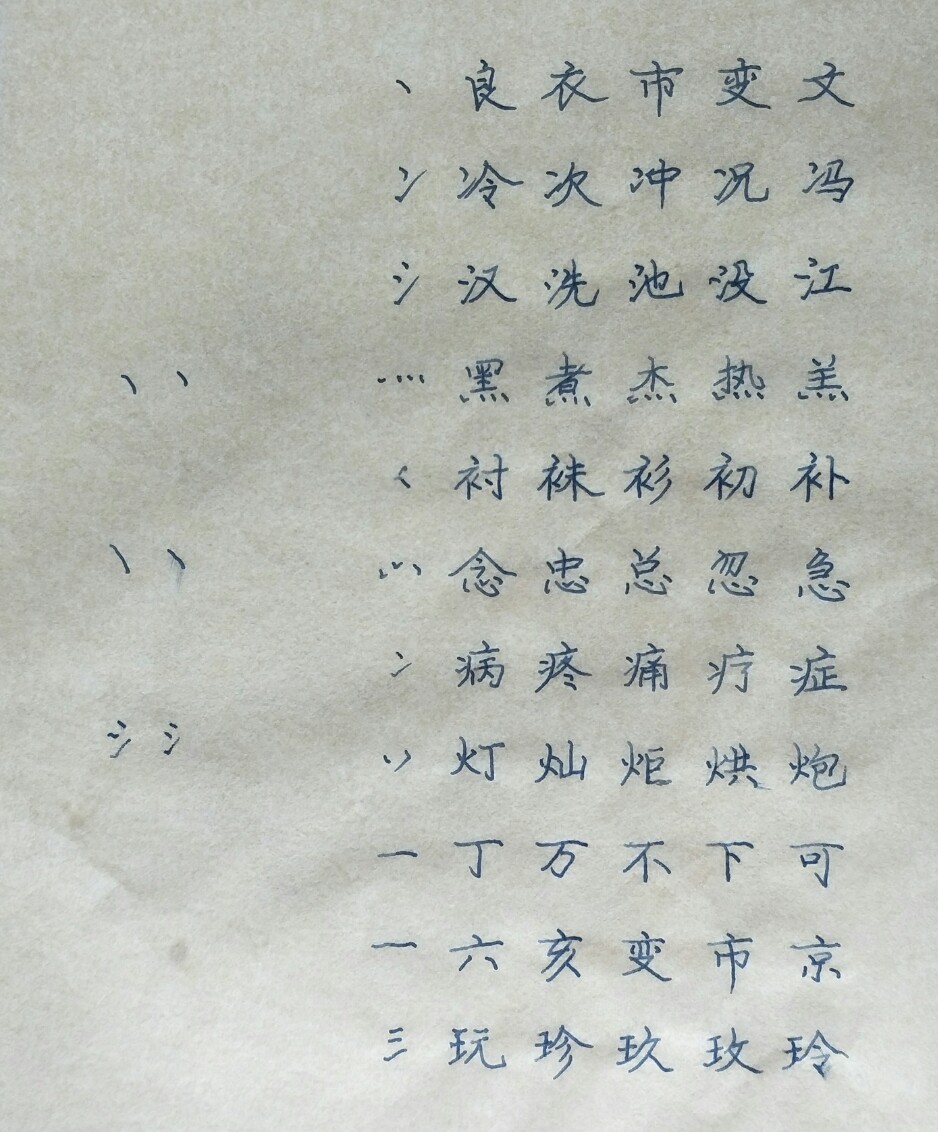 丶 良 衣 市 变 文
冫 冷 次 冲 况 冯
氵 汉 洗 池 没 江
灬 黑 煮 杰 热 羔
衬 袜 衫 初 补
念 忠 总 忽 急
冫 病 疼 痛 疗 症
灯 灿 炬 烘 炮
一 丁 万 不 下 可
一 六 亥 变 市 京
三 玩 珍 玖 玫 玲